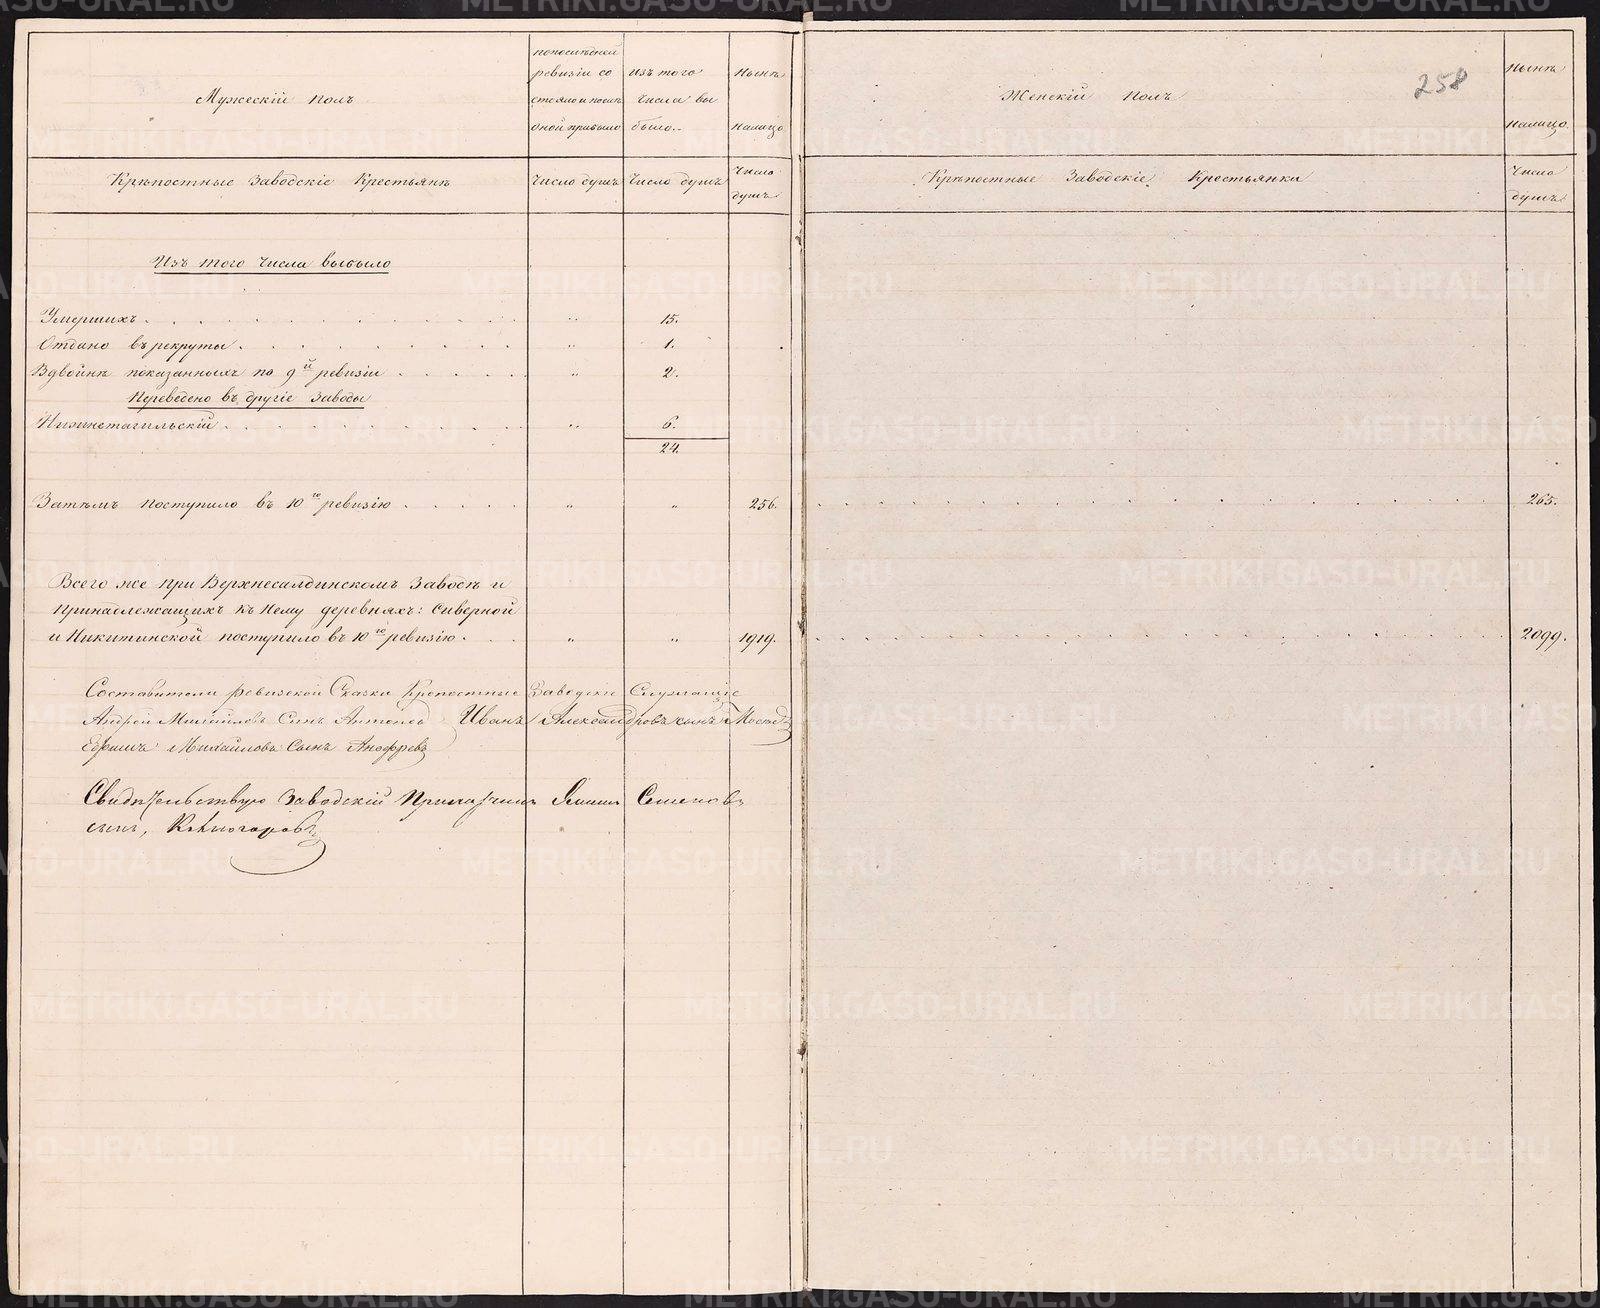 Мужескій полъ
по последней
ревизіи со
стояло и после
оной прибыло
изъ того
числа вы
было.
Нынѣ
налицо.
Женскій полъ
258
Нынѣ
налицо.
Крѣпостные Заводскіе Крестьянѣ
Число душъ
Число душъ
Число
душъ
Крѣпостные Заводскіе Крестьянки
Число
душъ
Изъ того числа выбыло
Умершихъ . . . . . . . . . . " 15.
Отдано въ рекруты . . . . . . . . " 1.
Вдвойнѣ показанныхъ по 9й ревизіи . . . . . " 2.
Переведено въ другіе заводы
Нижнетагильскій . . . . . . . . . " 6.
24.
Затѣмъ поступило въ 10ю ревизію . . . . . " " 256. . . . . . . . . . . . . . . . . 265.
Всего же при Верхнесалдинскомъ заводѣ и
принадлежащихъ къ нему деревняхъ: Сиверной
и Никитинской поступило въ 10ю ревизію . . . " " 1919. . . . . . . . . . . . . . . . . 2099.
Составители ревизской Сказки Крепостные Заводскіе Служащіе
Андрей Михайловъ Сынъ Антоновъ Иванъ Александровъ сынъ
Ефимъ Михайловъ Сынъ
Свидѣтельствую Заводскій Прикащикъ Семеновъ
сынъ,
METRIKI.GASO-URAL.RU